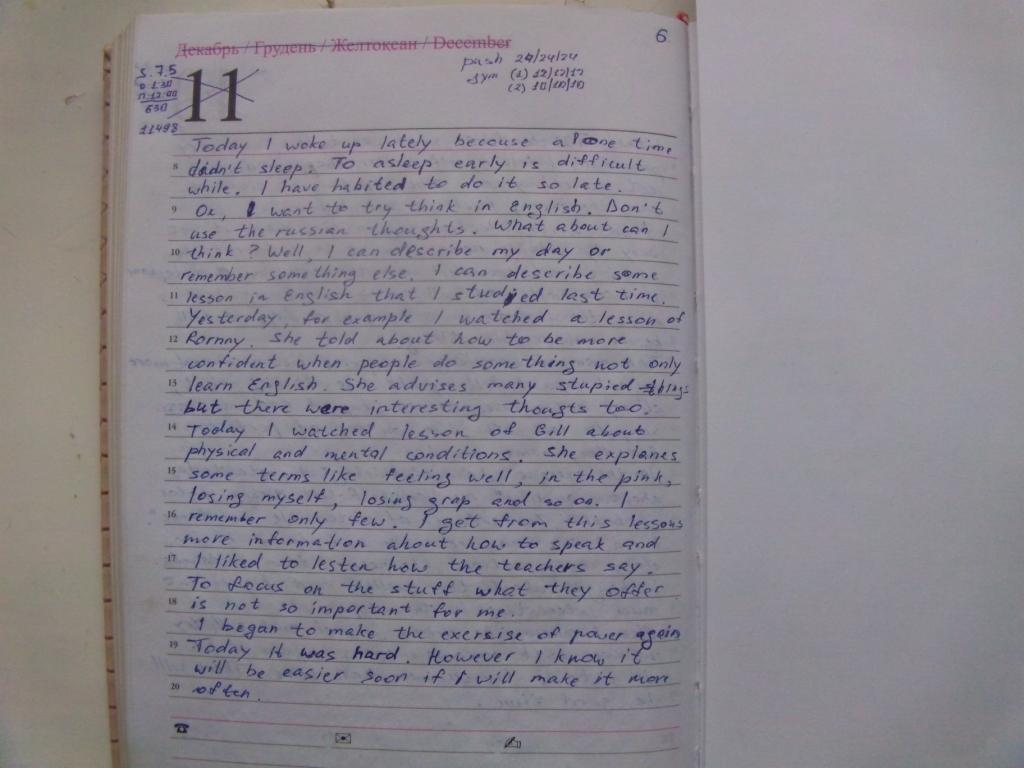 6
Декабрь / Грудень / Желтоксан / December
push 24/24/24
gym (1) 12/12/12
(2) 10/10/10
5.7.5
0 1:30
11
630
11498
Today I woke up lately because a lone time
8 didn't sleep. To asleep early is difficult
while. I have habited to do it so late.
9 Ok, I want to try think in English. Don't
use the russian thoughts. What about can I
10 think? Well, I can describe my day or
remember something else. I can describe some
11 lesson in English that I studied last time.
Yesterday, for example I watched a lesson of
12 She told about how to be more
confident when people do something not only
13 learn English. She advises many stupied things
but there were interesting thougts too.
14 Today I watched lesson of Gill about
physical and mental conditions. She explanes
15 some terms like feeling well, in the pink,
losing myself, losing grap and so on. I
16 remember only few. I get from this lessons
more information about how to speak and
17 I liked to lesten how the teachers say.
To focus on the stuff what they offer
18 is not so important for me.
I began to make the exersise of power again
19 Today it was hard. However I know it
will be easier soon if I will make it more
20 often.